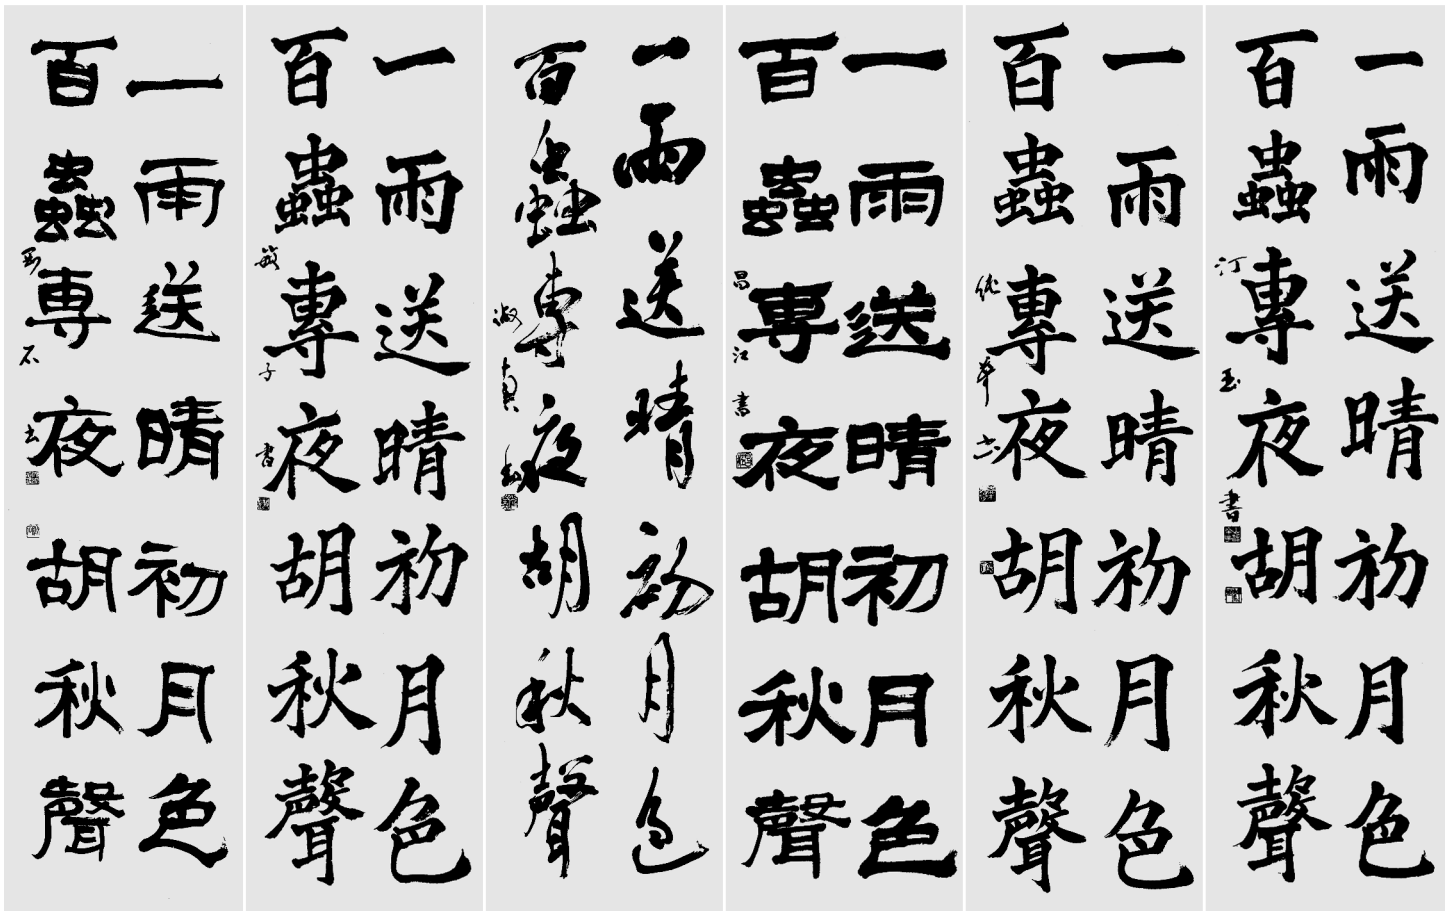 一雨送晴初月色
百蟲專夜胡秋聲
汀玉書
一雨送晴初月色
百蟲專夜胡秋聲
一雨送晴初月色
百蟲專夜胡秋聲
昌江書
一雨送晴初月色
百蟲專夜胡秋聲
一雨送晴初月色
百蟲專夜胡秋聲
子書
一雨送晴初月色
百蟲專夜胡秋聲